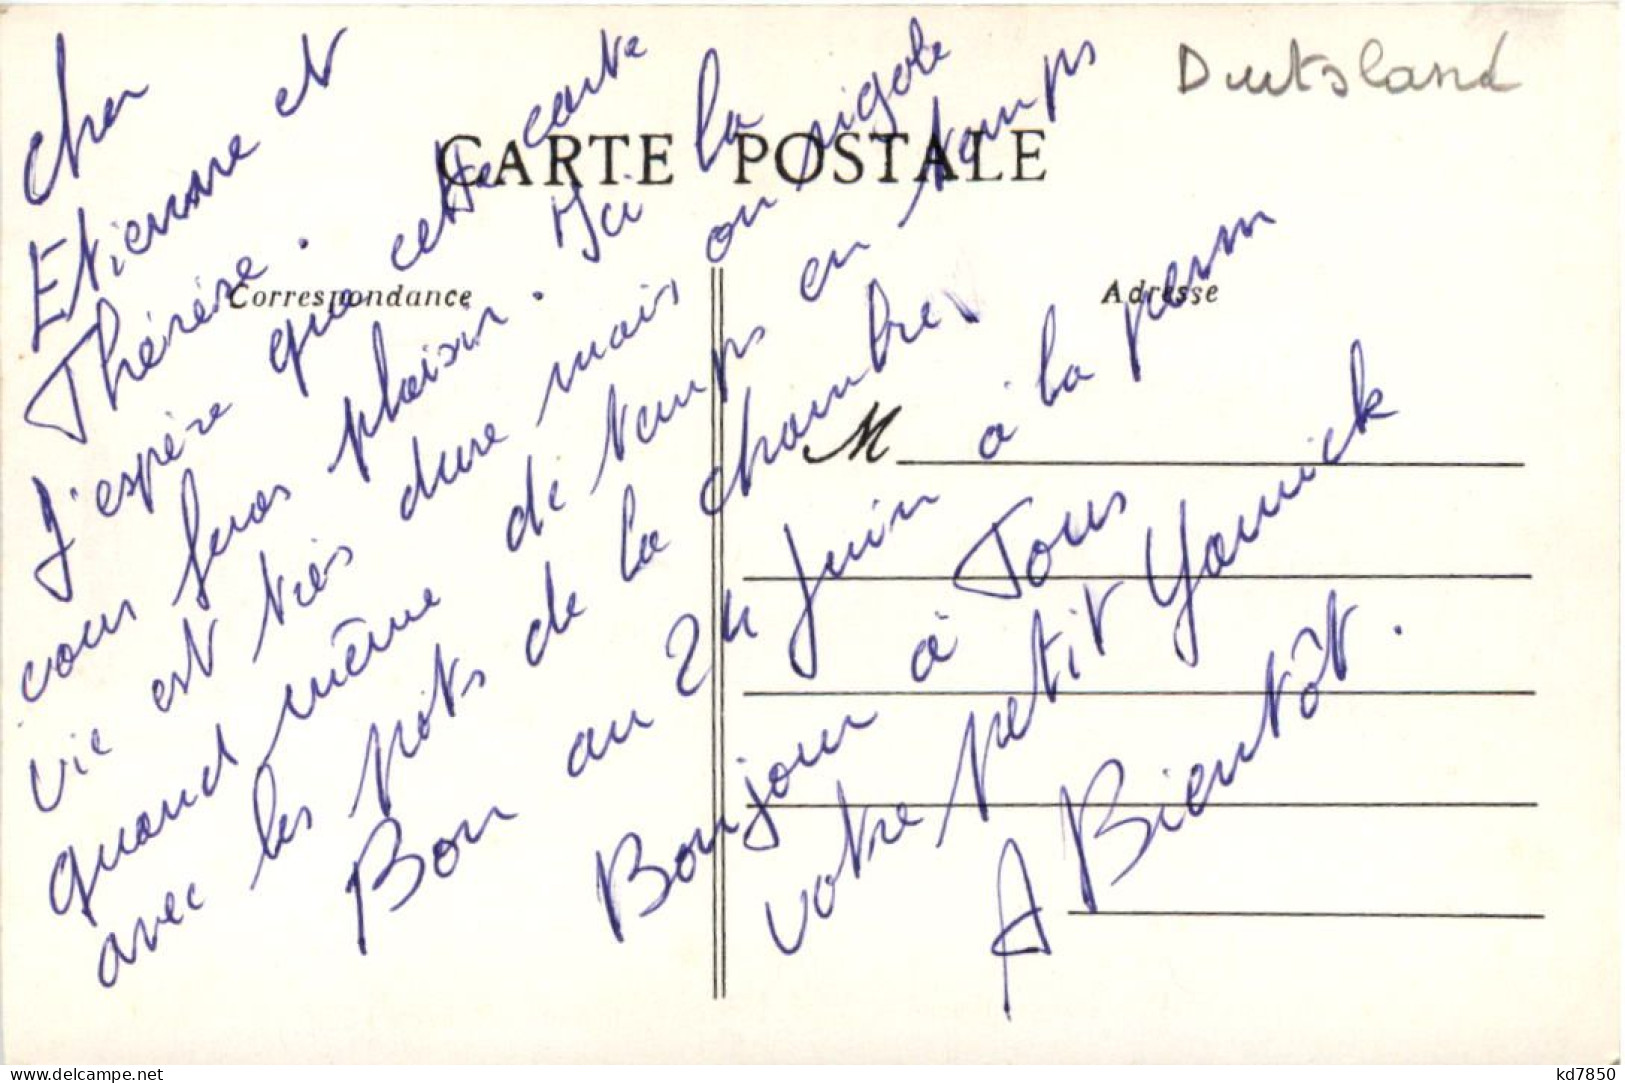 Duitsland
CARTE POSTALE
Correspondance
Adresse
M
Cher
Etienne et
Thérèse.
J'espère que cette carte
vous feras plaisir. Ici la
vie est très dure mais on rigole
quand même de temps en temps
avec les pots de la chambre.
Bon au 24 Juin à la perm
Bonjour à Tous
votre petit Yannick
A Bientôt.
www.delcampe.net
kd7850